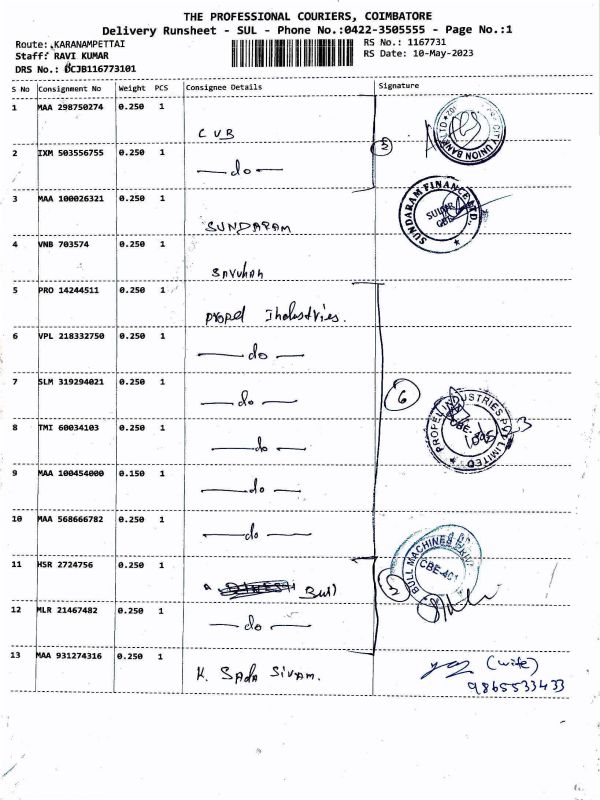 THE PROFESSIONAL COURIERS, COIMBATORE
Delivery Runsheet - SUL - Phone No.:0422-3505555 - Page No.:1
Route: KARANAMPETTAI
RS No.: 1167731
Staff: RAVI KUMAR
RS Date: 10-May-2023
DRS No.: BCJB116773101
S No Consignment No Weight PCS Consignee Details Signature
1 MAA 298750274 0.250 1 CUB
CITY UNION BANK LTD
2 IXM 503556755 0.250 1 do
3 MAA 100026321 0.250 1 SUNDARAM
SUNDARAM FINANCE LTD.,
4 VNB 703574 0.250 1
5 PRO 14244511 0.250 1 Propel Industries.
6 VPL 218332750 0.250 1 do
7 SLM 319294021 0.250 1 do
6
PROPEL INDUSTRIES PVT LIMITED
CBE-
8 TMI 60034103 0.250 1 do
9 MAA 100454000 0.150 1 do
10 MAA 568666782 0.250 1 do
BULL MACHINES
CBE-401
11 HSR 2724756 0.250 1 Bull
12 MLR 21467482 0.250 1 do
13 MAA 931274316 0.250 1 K. Sada Sivam.
(wife)
9865533433